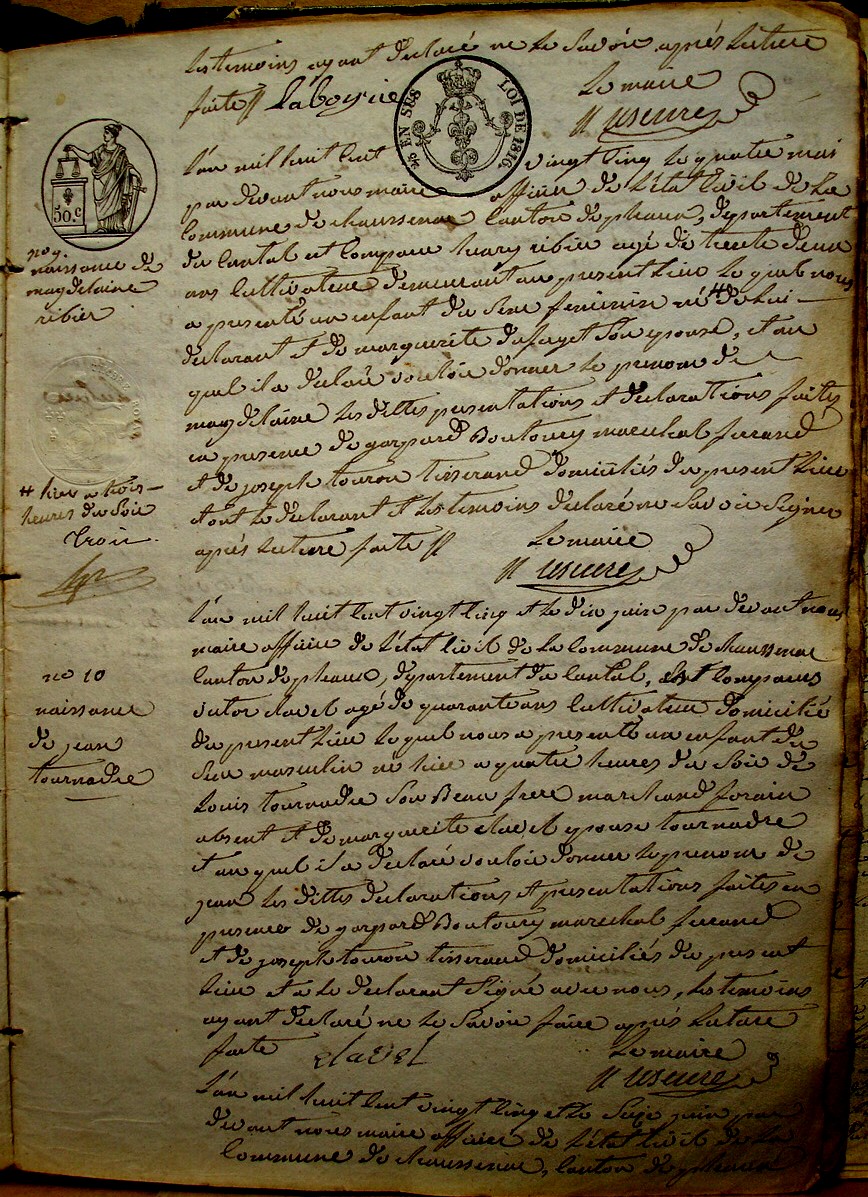 les temoins ayant declaré ne le savoir après lecture
faite // Laboyrie Le maire
EN SUS LOI DE 1816
50.c
L'an mil huit cent vingt cinq le quatre mai
par devant nous maire officier de l'état civil de la
commune de chaussenac canton de pleaux, département
du cantal est comparu henry ribier agé de trente deux
ans cultivateur demeurant au present lieu lequel nous
a presenté un enfant du sexe feminin né # de lui
declarant et de marguerite dufayet son epouse, et au
quel il a declaré vouloir donner le prenom de
magdelaine les dittes presentations et declarations faites
en presence de gaspard Boutoury marechal ferrand
et de joseph touron tisserand domiciliés du present lieu
et ont le declarant et les temoins declaré ne savoir signer
après lecture faite // Le maire
no 9.
naissance de
magdelaine
ribier
# hier a trois
heures du soir
L'an mil huit cent vingt cinq et le dix juin par devant nous
maire officier de l'état civil de la commune de chaussenac
canton de pleaux, département du cantal, est comparu
victor clavel agé de quarante ans cultivateur domicilié
du present lieu lequel nous a presenté un enfant du
sexe masculin né hier a quatre heures du soir de
Louis tournadre son Beau frere marchand forain
absent et de marguerite clavel epouse tournadre
et au quel il a declaré vouloir donner le prenom de
jean les dittes declarations et presentations faites en
presence de gaspard Boutoury marechal ferrand
et de joseph touron tisserand domiciliés du present
lieu et a le declarant signé avec nous, les temoins
ayant declaré ne le savoir faire après lecture
faite clavel Le maire
no 10
naissance
de jean
tournadre
L'an mil huit cent vingt cinq et le seize juin par
devant nous maire officier de l'état civil de la
commune de chaussenac, canton de pleaux